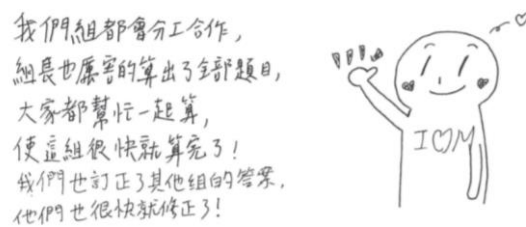 我們組都會分工合作，
組長也厲害的算出了全部題目，
大家都幫忙一起算，
使這組很快就算完了！
我們也訂正了其他組的答案，
他們也很快就修正了！
I♡M